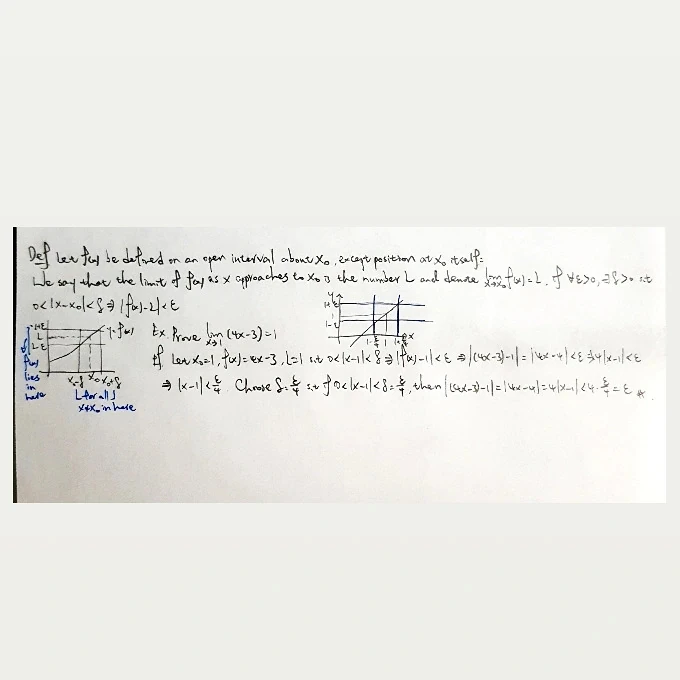 Def Let f(x) be defined on an open interval about x₀, except position at x₀ itself.
We say that the limit of f(x) as x approaches to x₀ is the number L and denote lim x→x₀ f(x)=L, if ∀ε>0, ∃δ>0 s.t
0<|x-x₀|<δ ⇒ |f(x)-L|<ε
y
1+ε
1
1-ε
1-ε/4 1 1+ε/4 x
L+ε
L
L-ε
y=f(x)
x₀-δ x₀ x₀+δ
f(x)
lies
in
here
for all
x≠x₀ in here
Ex. Prove lim x→1 (4x-3)=1
pf Let x₀=1, f(x)=4x-3, L=1 s.t 0<|x-1|<δ ⇒ |f(x)-1|<ε ⇒ |(4x-3)-1|=|4x-4|<ε ⇒ 4|x-1|<ε
⇒ |x-1|<ε/4. Choose δ=ε/4 s.t if 0<|x-1|<δ=ε/4, then |(4x-3)-1|=|4x-4|=4|x-1|<4·ε/4=ε